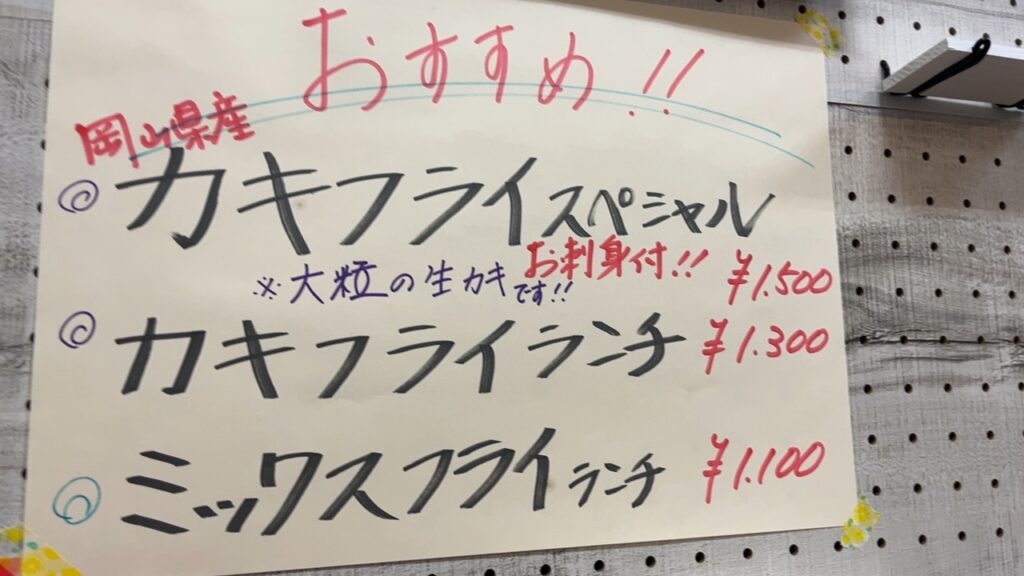 おすすめ!!
岡山県産
◎カキフライスペシャル
お刺身付!!
※大粒の生カキです!! ¥1.500
◎カキフライランチ ¥1.300
◎ミックスフライランチ ¥1.100